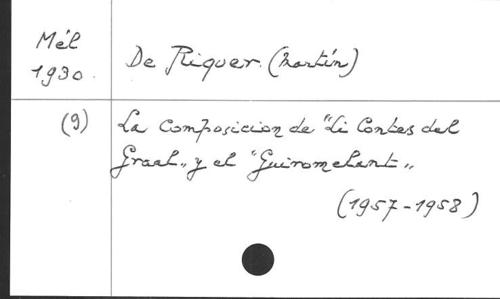 Mél
1930.
De Riquer. (Martín)
(9)
La composicion de "Li Contes del
Graal„ y el "Guiromelant„
(1957-1958)